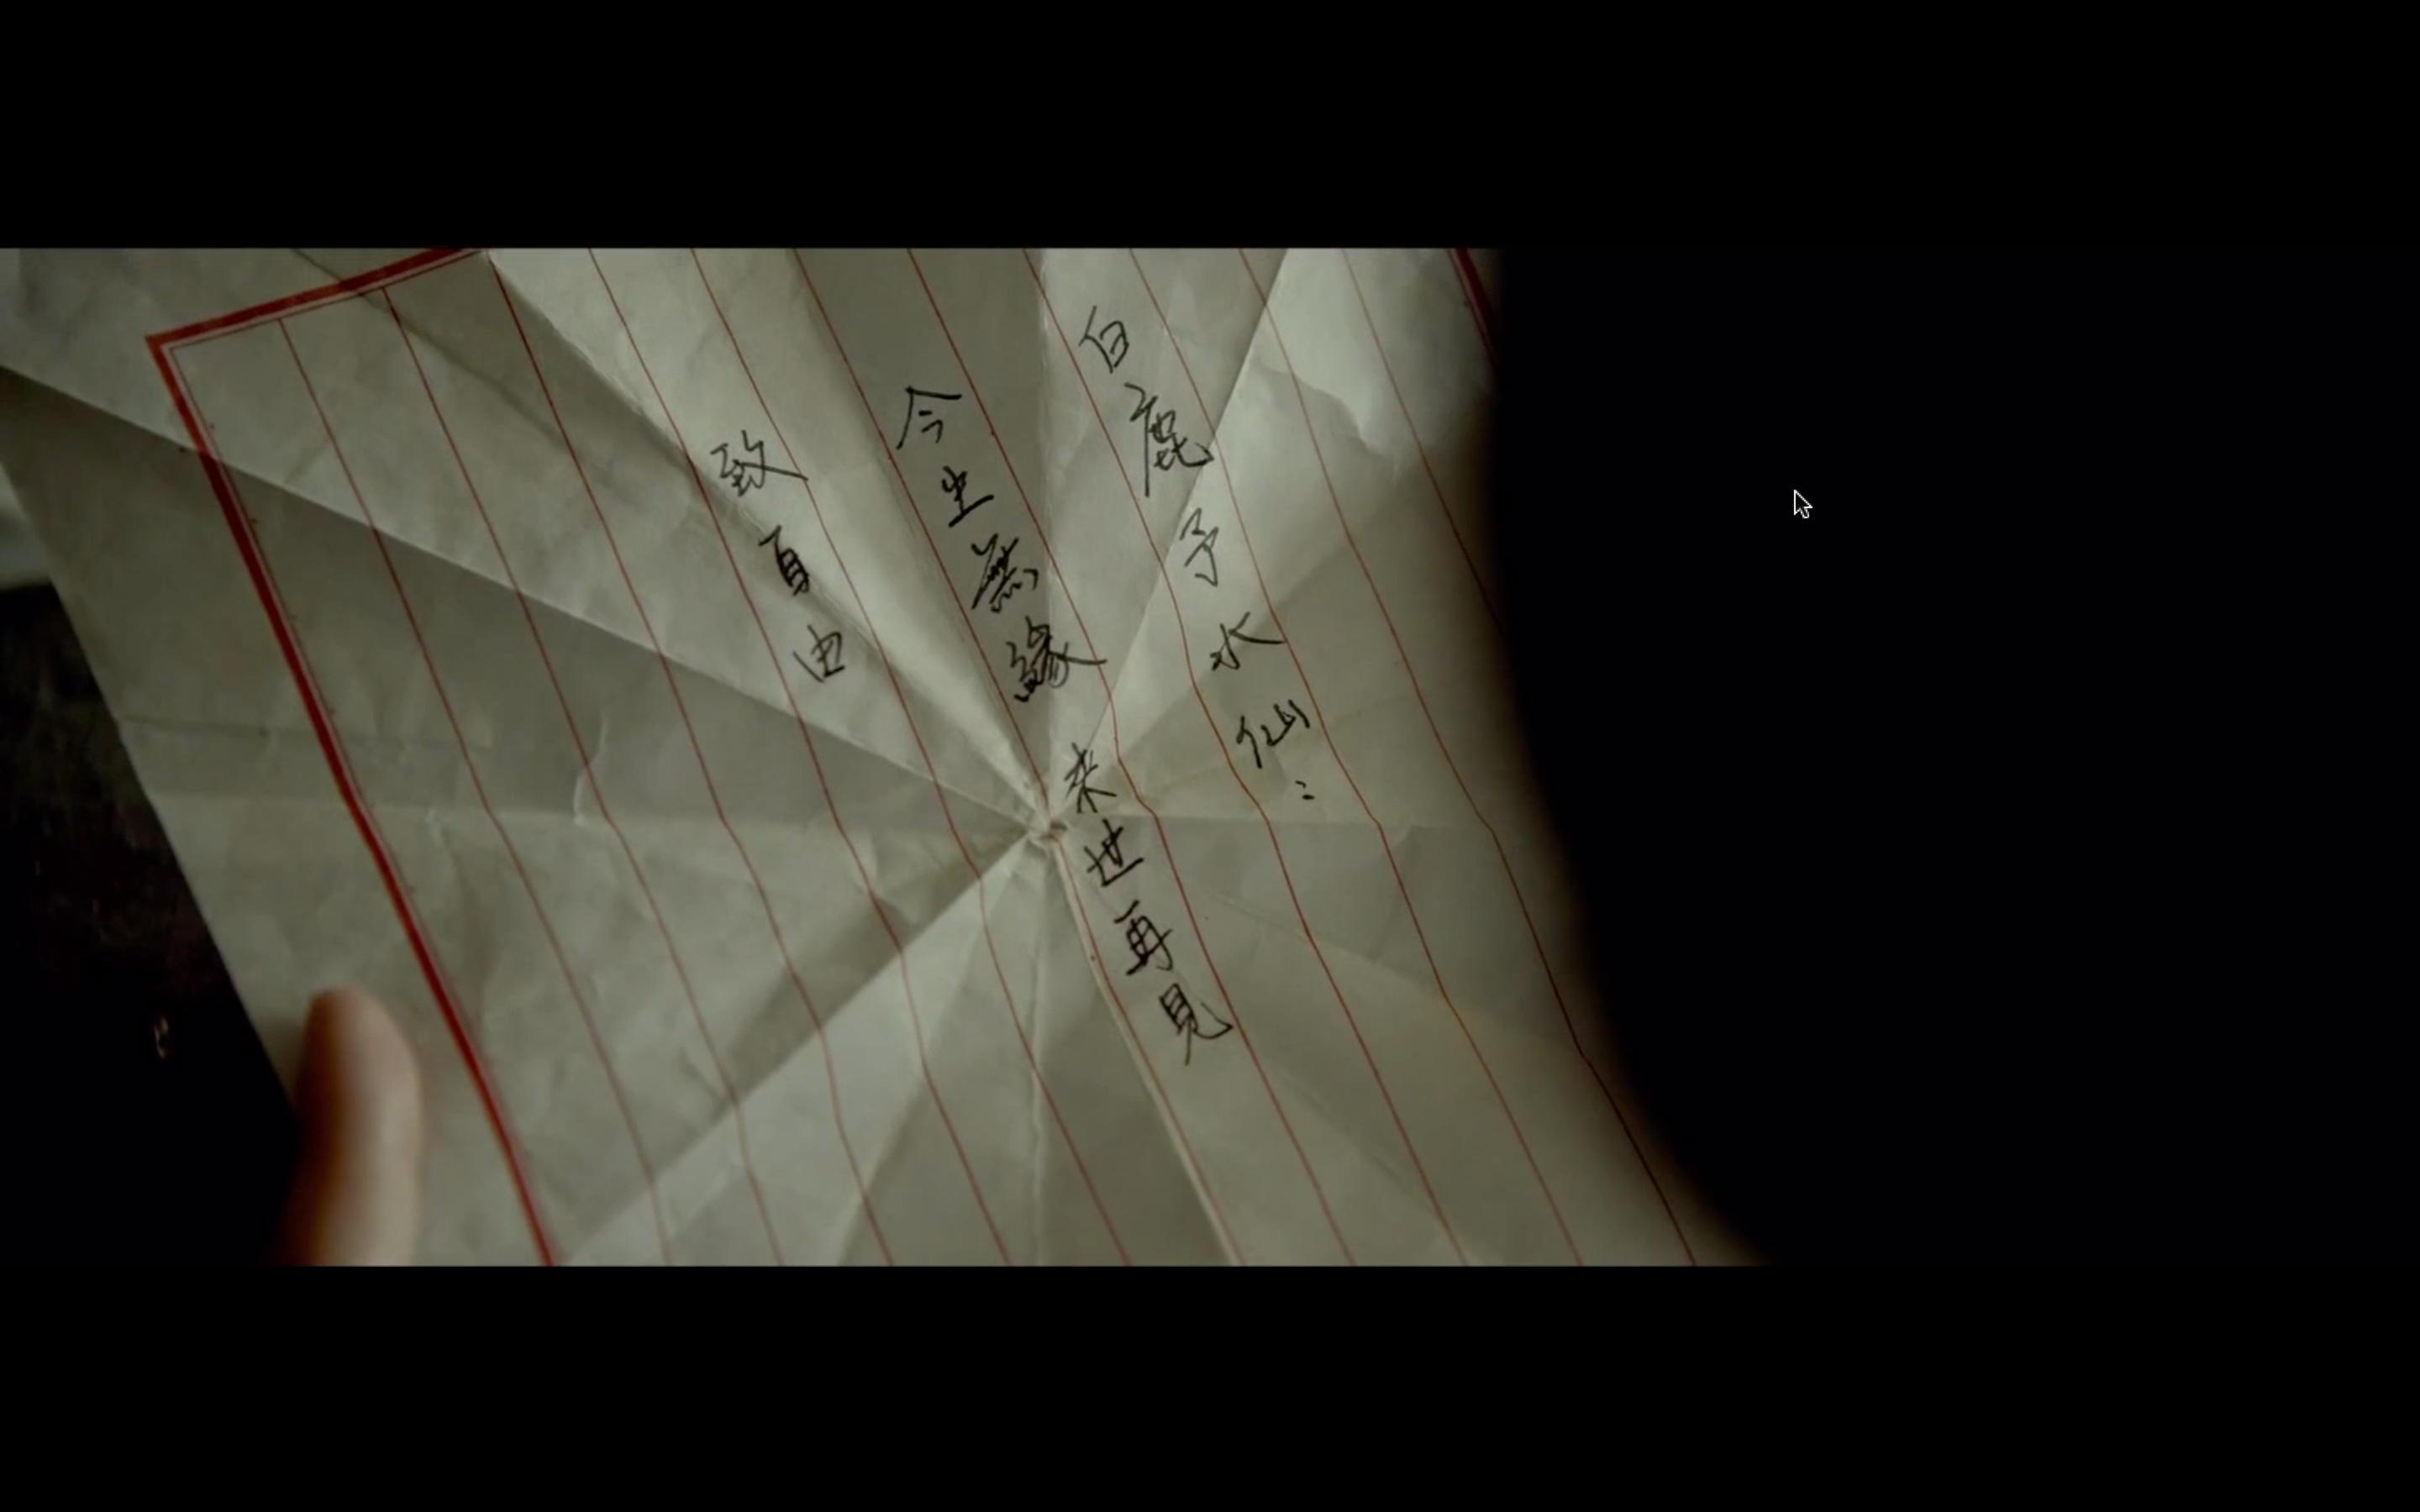 白鹿予水仙：
今生無緣 来世再見
致自由